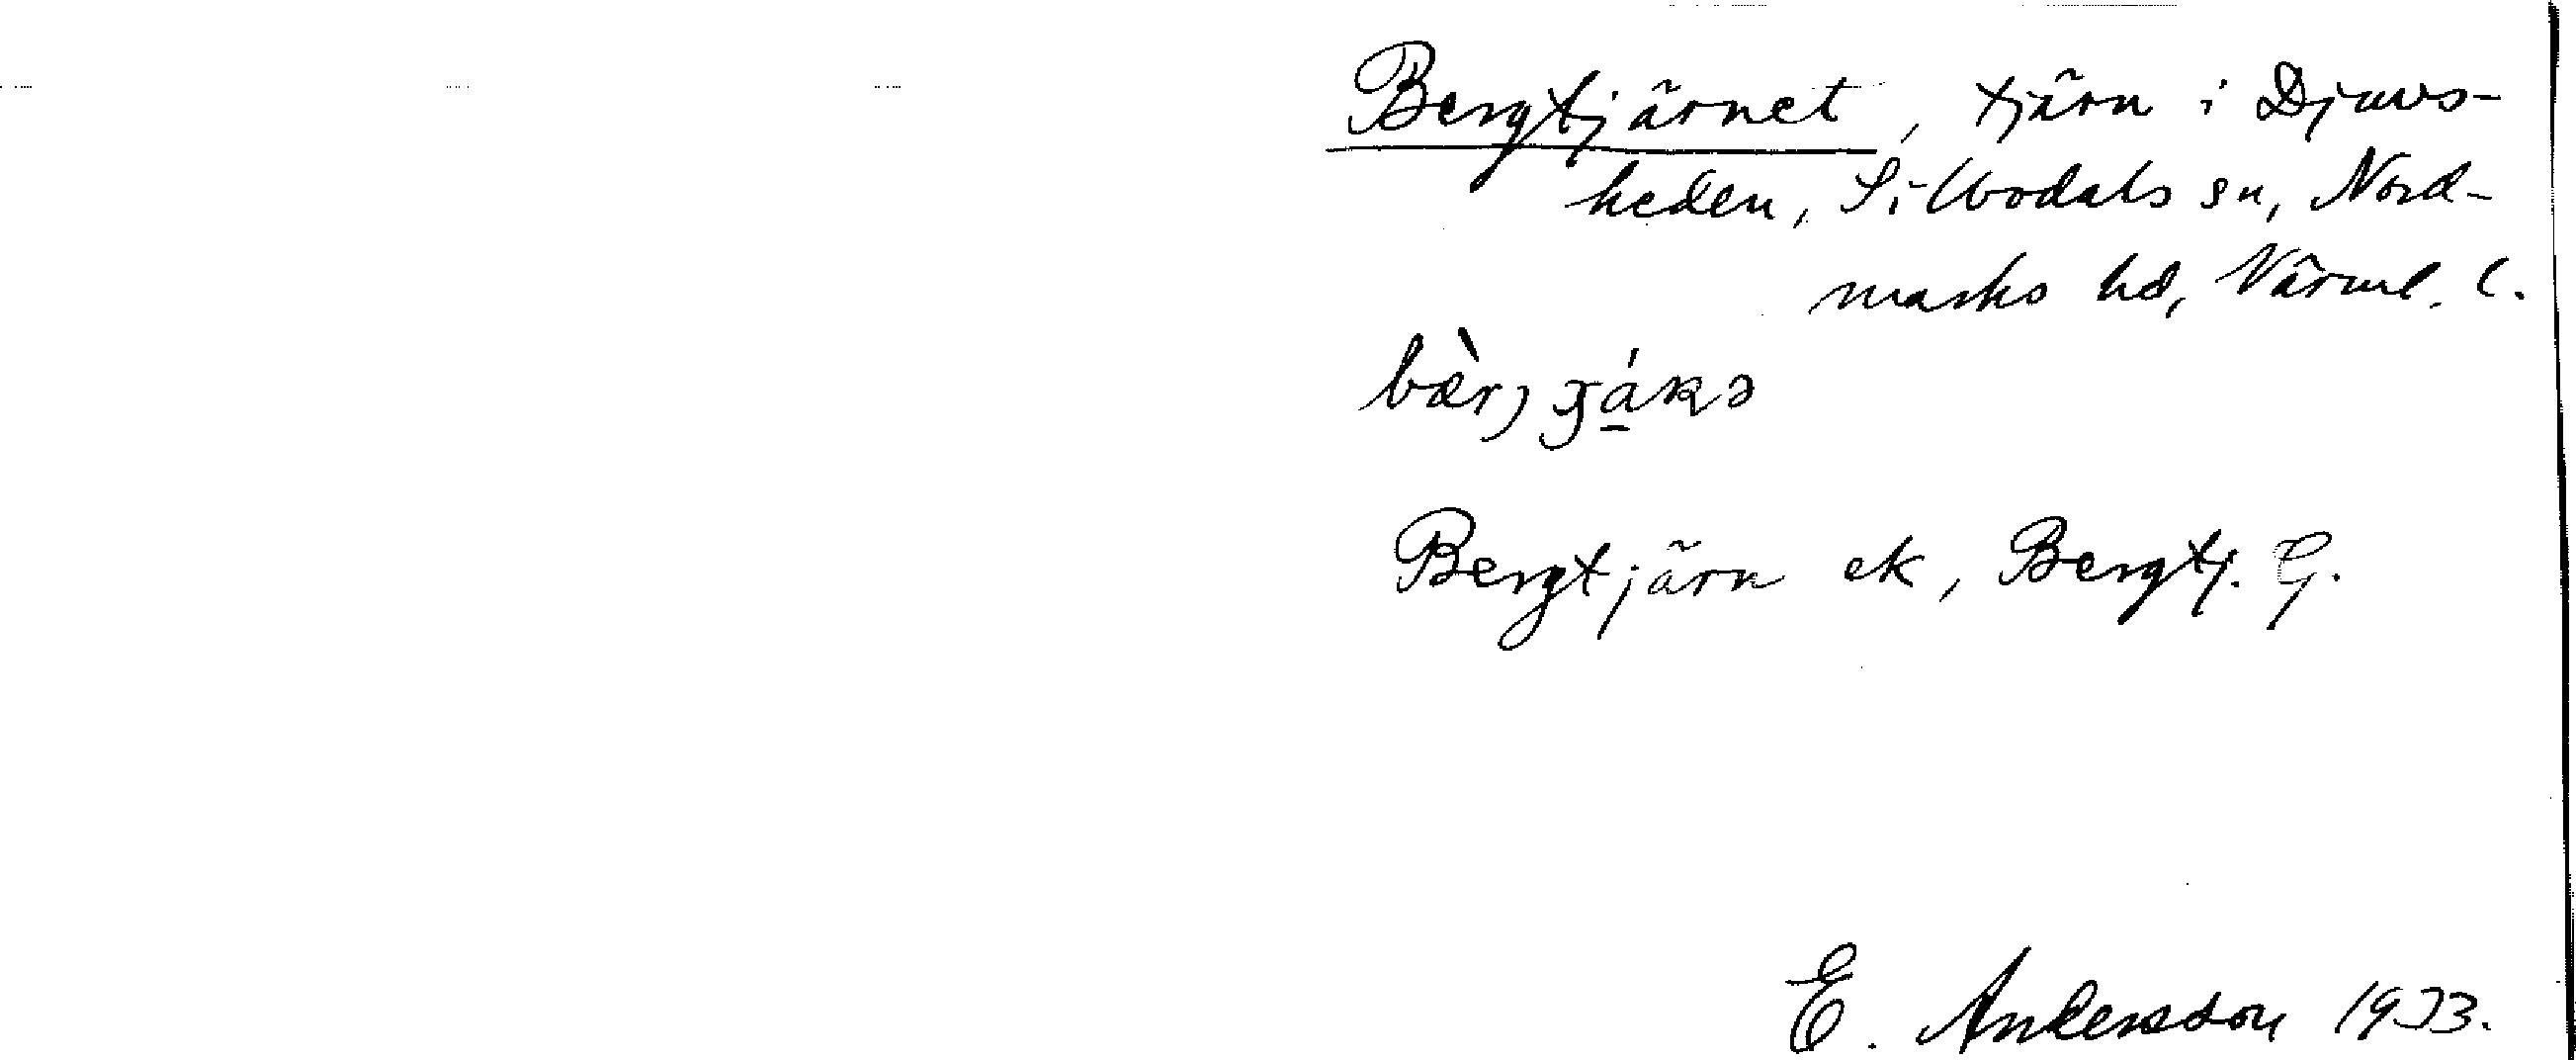 Bergtjärnet, tjärn i Djuvs-
heden, Sillbodals sn, Nord-
marks hd, Värml. l.
Bergtjärn ek, Bergtj. G.
E. Andersson 1933.